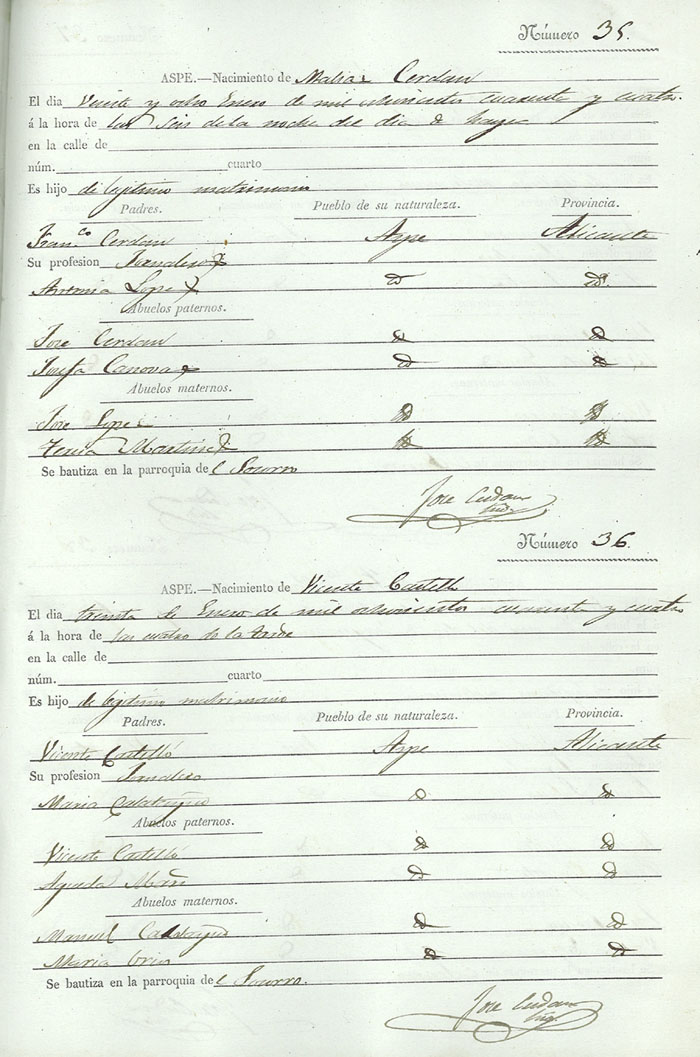 Número 35.
ASPE.—Nacimiento de Maria Cerdan
El dia Veinte y ocho Enero de mil ochocientos cuarenta y cuatro.
á la hora de las seis de la noche del dia de
en la calle de
núm. cuarto
Es hijo de legitimo matrimonio
Padres. Pueblo de su naturaleza. Provincia.
Fran.co Cerdan Aspe Alicante
Su profesion
Antonia Lopez
Abuelos paternos.
Jose Cerdan
Josefa Canova
Abuelos maternos.
Jose Lopez
Teresa Martinez
Se bautiza en la parroquia del Socorro
Jose Cerdan
Número 36.
ASPE.—Nacimiento de Vicente Castelló
El dia treinta de Enero de mil ochocientos cuarenta y cuatro
á la hora de las cuatro de la tarde
en la calle de
núm. cuarto
Es hijo de legitimo matrimonio
Padres. Pueblo de su naturaleza. Provincia.
Vicente Castelló Aspe Alicante
Su profesion
Maria Calatayud
Abuelos paternos.
Vicente Castelló
Agueda
Abuelos maternos.
Manuel Calatayud
Maria
Se bautiza en la parroquia del Socorro.
Jose Cerdan